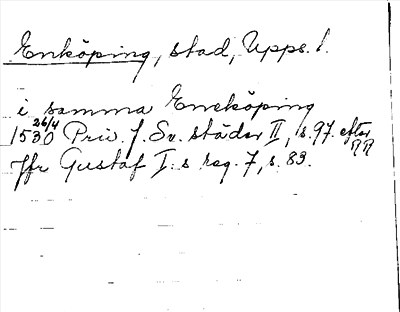 Enköping, stad, Upps. l.
i samma Eneköping
1530 26/4 Priv. f. Sv. städer II, s. 97. efter RR
Jfr Gustaf I:s reg. 7, s. 83.